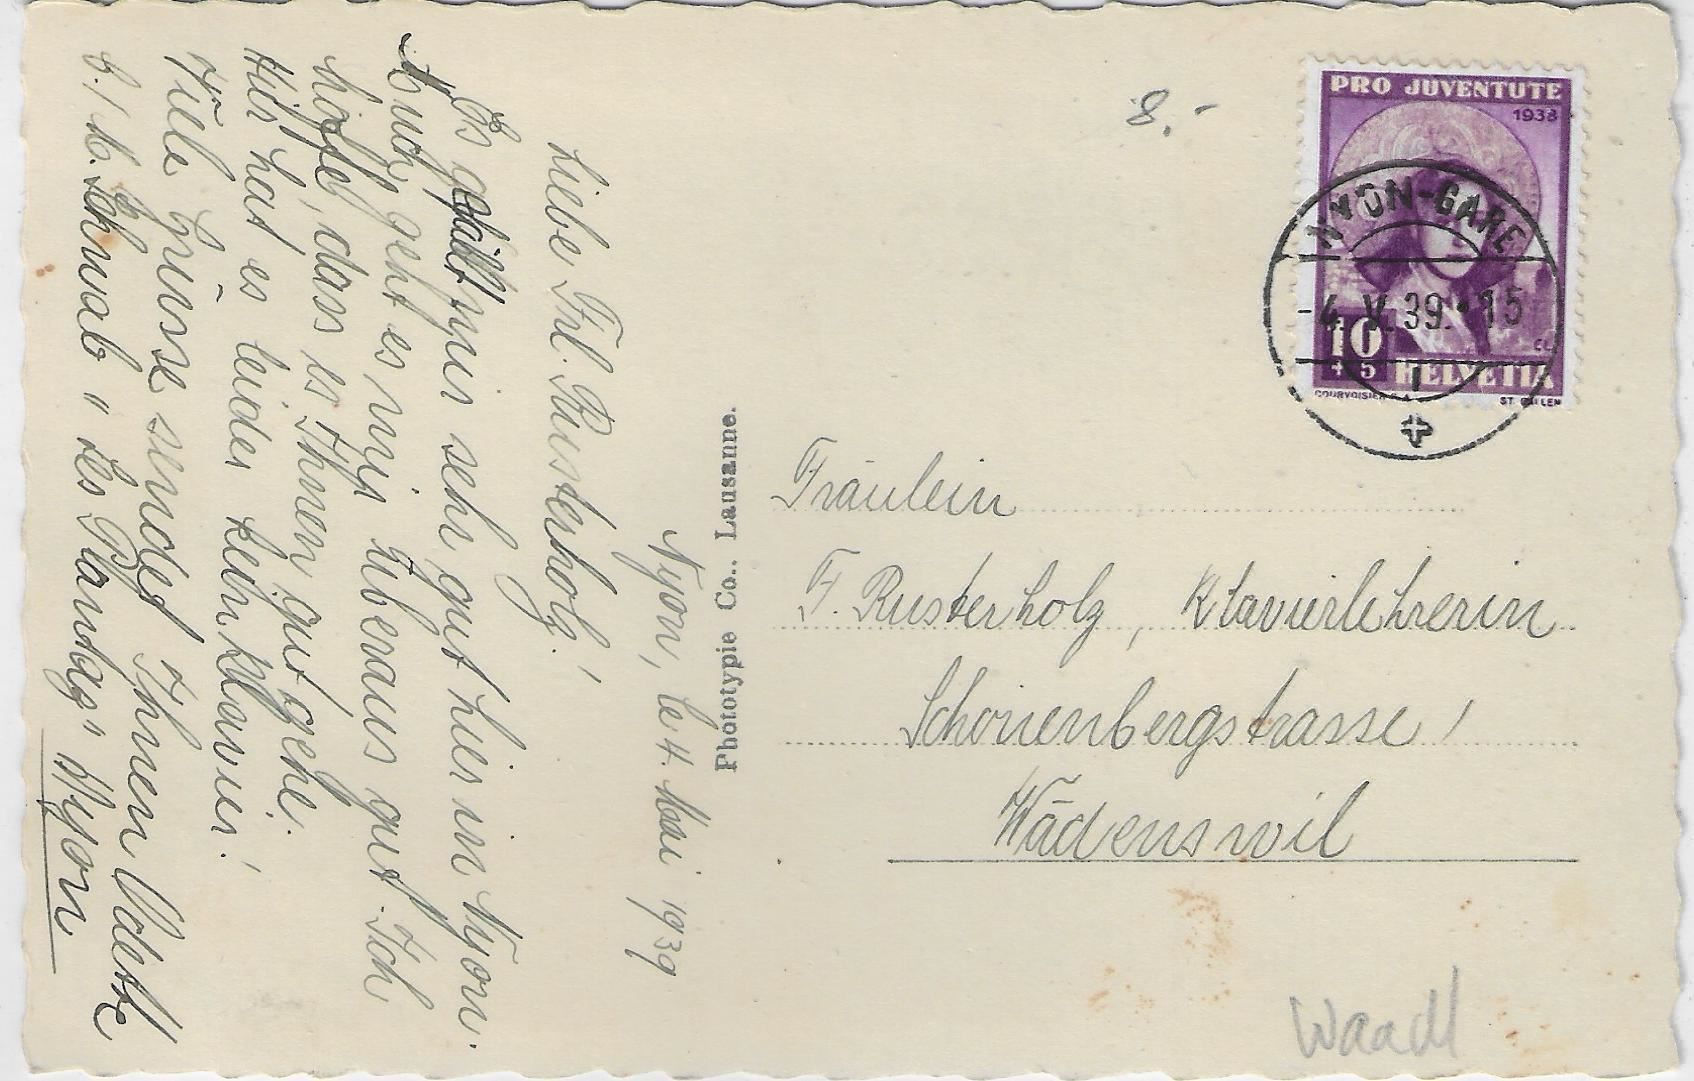 Nyon, le 4. Mai 1939
Liebe Frl. Rusterholz!
Es gefällt mir sehr gut hier in Nyon.
Auch geht es mir überaus gut. Ich
hoffe, dass es Ihnen gut gehe.
Hier hat es leider kein Klavier!
Viele Grüsse sendet Ihnen Odette
b./ M. Schwab "Les Plantaz" Nyon
Phototypie Co., Lausanne.
8.-
PRO JUVENTUTE
1938
NYON-GARE
-4. V. 39.-15
10
+5
HELVETIA
COURVOISIER
ST. GALLEN
Fräulein
F. Rusterholz, Klavierlehrerin
Schönenbergstrasse 1
Wädenswil
Waadt